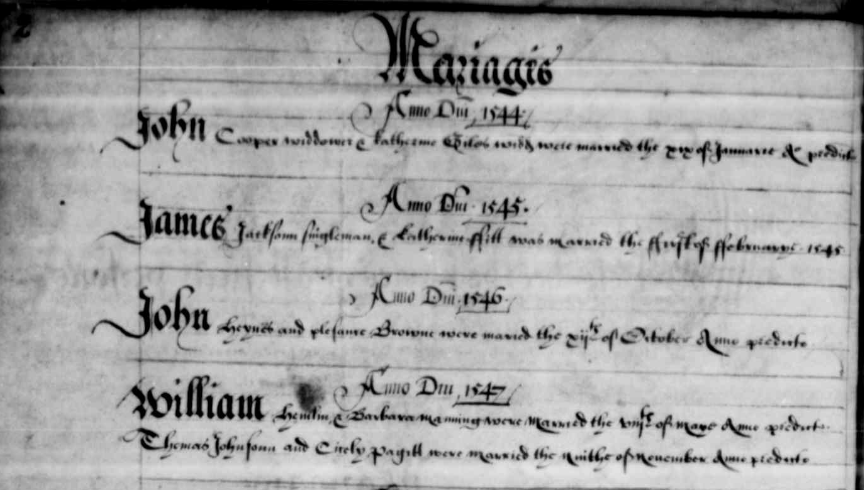 2
Mariagis
Anno Dm̄ 1544
John Cooper widdower & Katherine Giles widd were married the xix of Januarie A predict
Anno Dm̄ 1545.
James Jacksonn singleman & Katherine ffitt was married the of ffebruarye 1545
Anno Dm̄ 1546
John Heynes and plesante Browne were maried the xijth of October Anno predicto
Anno Dm̄ 1547
William & Barbara Manning were Married the of Maye Anno predicto
Thomas Johnsonn and Cicely Pagitt were married the Ninthe of November Anno predicto